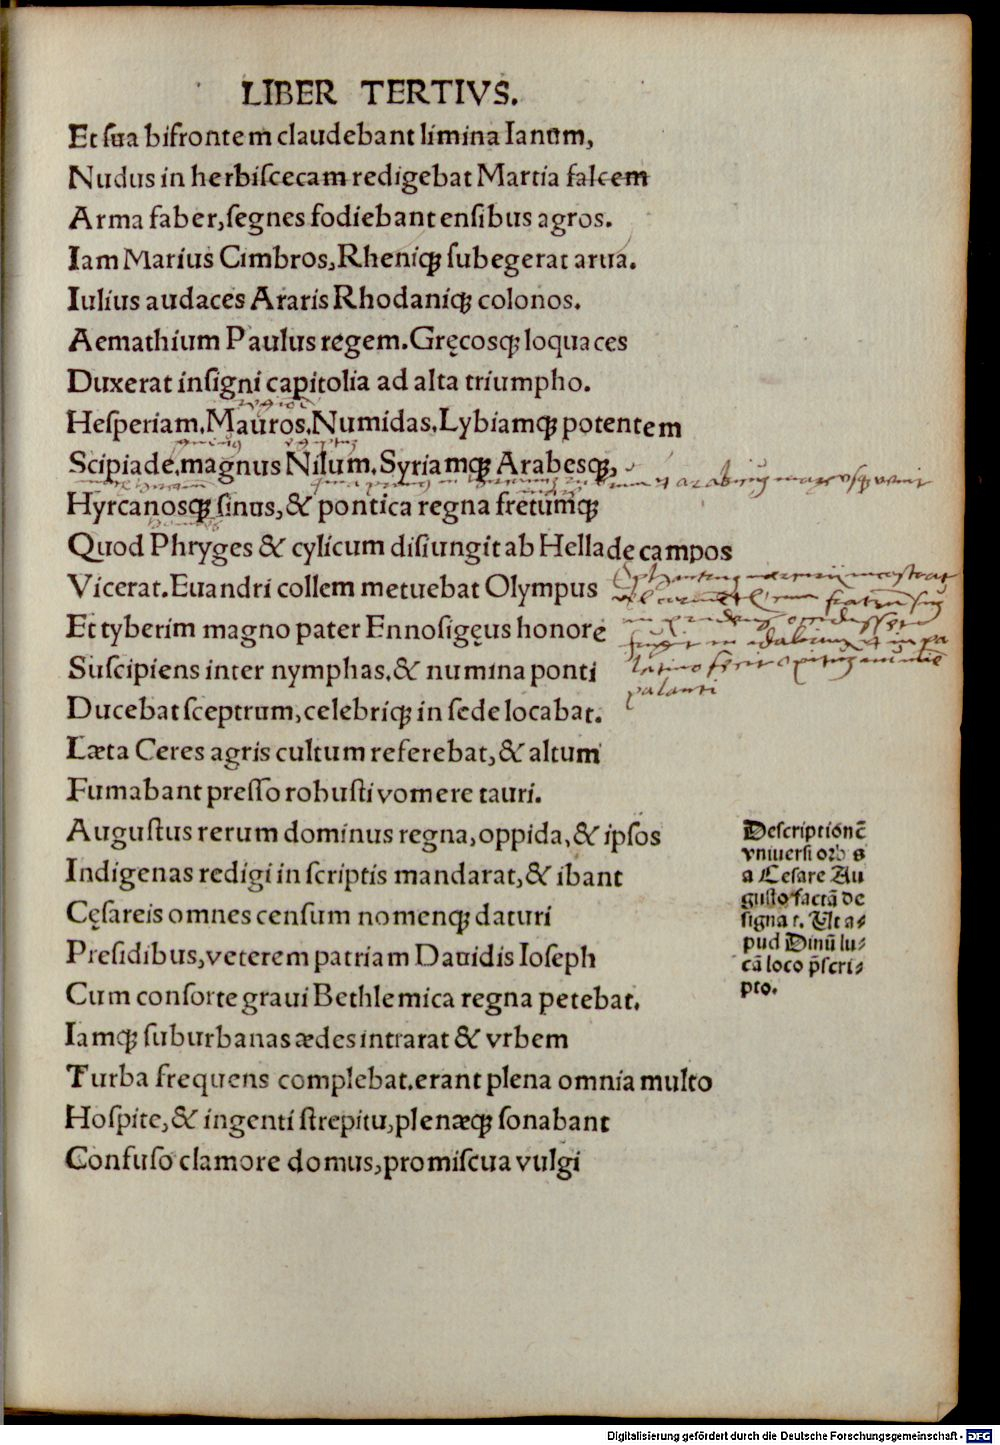 LIBER TERTIVS.
Et sua bifrontem claudebant limina Ianum,
Nudus in herbiscecam redigebat Martia falcem
Arma faber, segnes fodiebant ensibus agros.
Iam Marius Cimbros, Rheniqꝫ subegerat arua.
Iulius audaces Araris Rhodaniqꝫ colonos.
Aemathium Paulus regem. Gręcosqꝫ loquaces
Duxerat insigni capitolia ad alta triumpho.
Hesperiam. Mauros. Numidas. Lybiamqꝫ potentem
Scipiade. magnus Nilum. Syriamqꝫ Arabesqꝫ,
Hyrcanosqꝫ sinus, & pontica regna fretumqꝫ
Quod Phryges & cylicum disiungit ab Hellade campos
Vicerat. Euandri collem metuebat Olympus
Et tyberim magno pater Ennosigęus honore
Suscipiens inter nymphas, & numina ponti
Ducebat sceptrum, celebriqꝫ in sede locabat.
Læta Ceres agris cultum referebat, & altum
Fumabant presso robusti vomere tauri.
Augustus rerum dominus regna, oppida, & ipsos
Indigenas redigi in scriptis mandarat, & ibant
Cęsareis omnes censum nomenqꝫ daturi
Presidibus, veterem patriam Dauidis Ioseph
Cum consorte graui Bethlemica regna petebat.
Iamqꝫ suburbanas ædes intrarat & vrbem
Turba frequens complebat. erant plena omnia multo
Hospite, & ingenti strepitu, plenæqꝫ sonabant
Confuso clamore domus, promiscua vulgi
Descriptionē
vniuersi orb s
a Cesare Au
gusto factā de
signat. Vt a-
pud Diuū lu-
cā loco p̄scri-
pto.
Digitalisierung gefördert durch die Deutsche Forschungsgemeinschaft - DFG